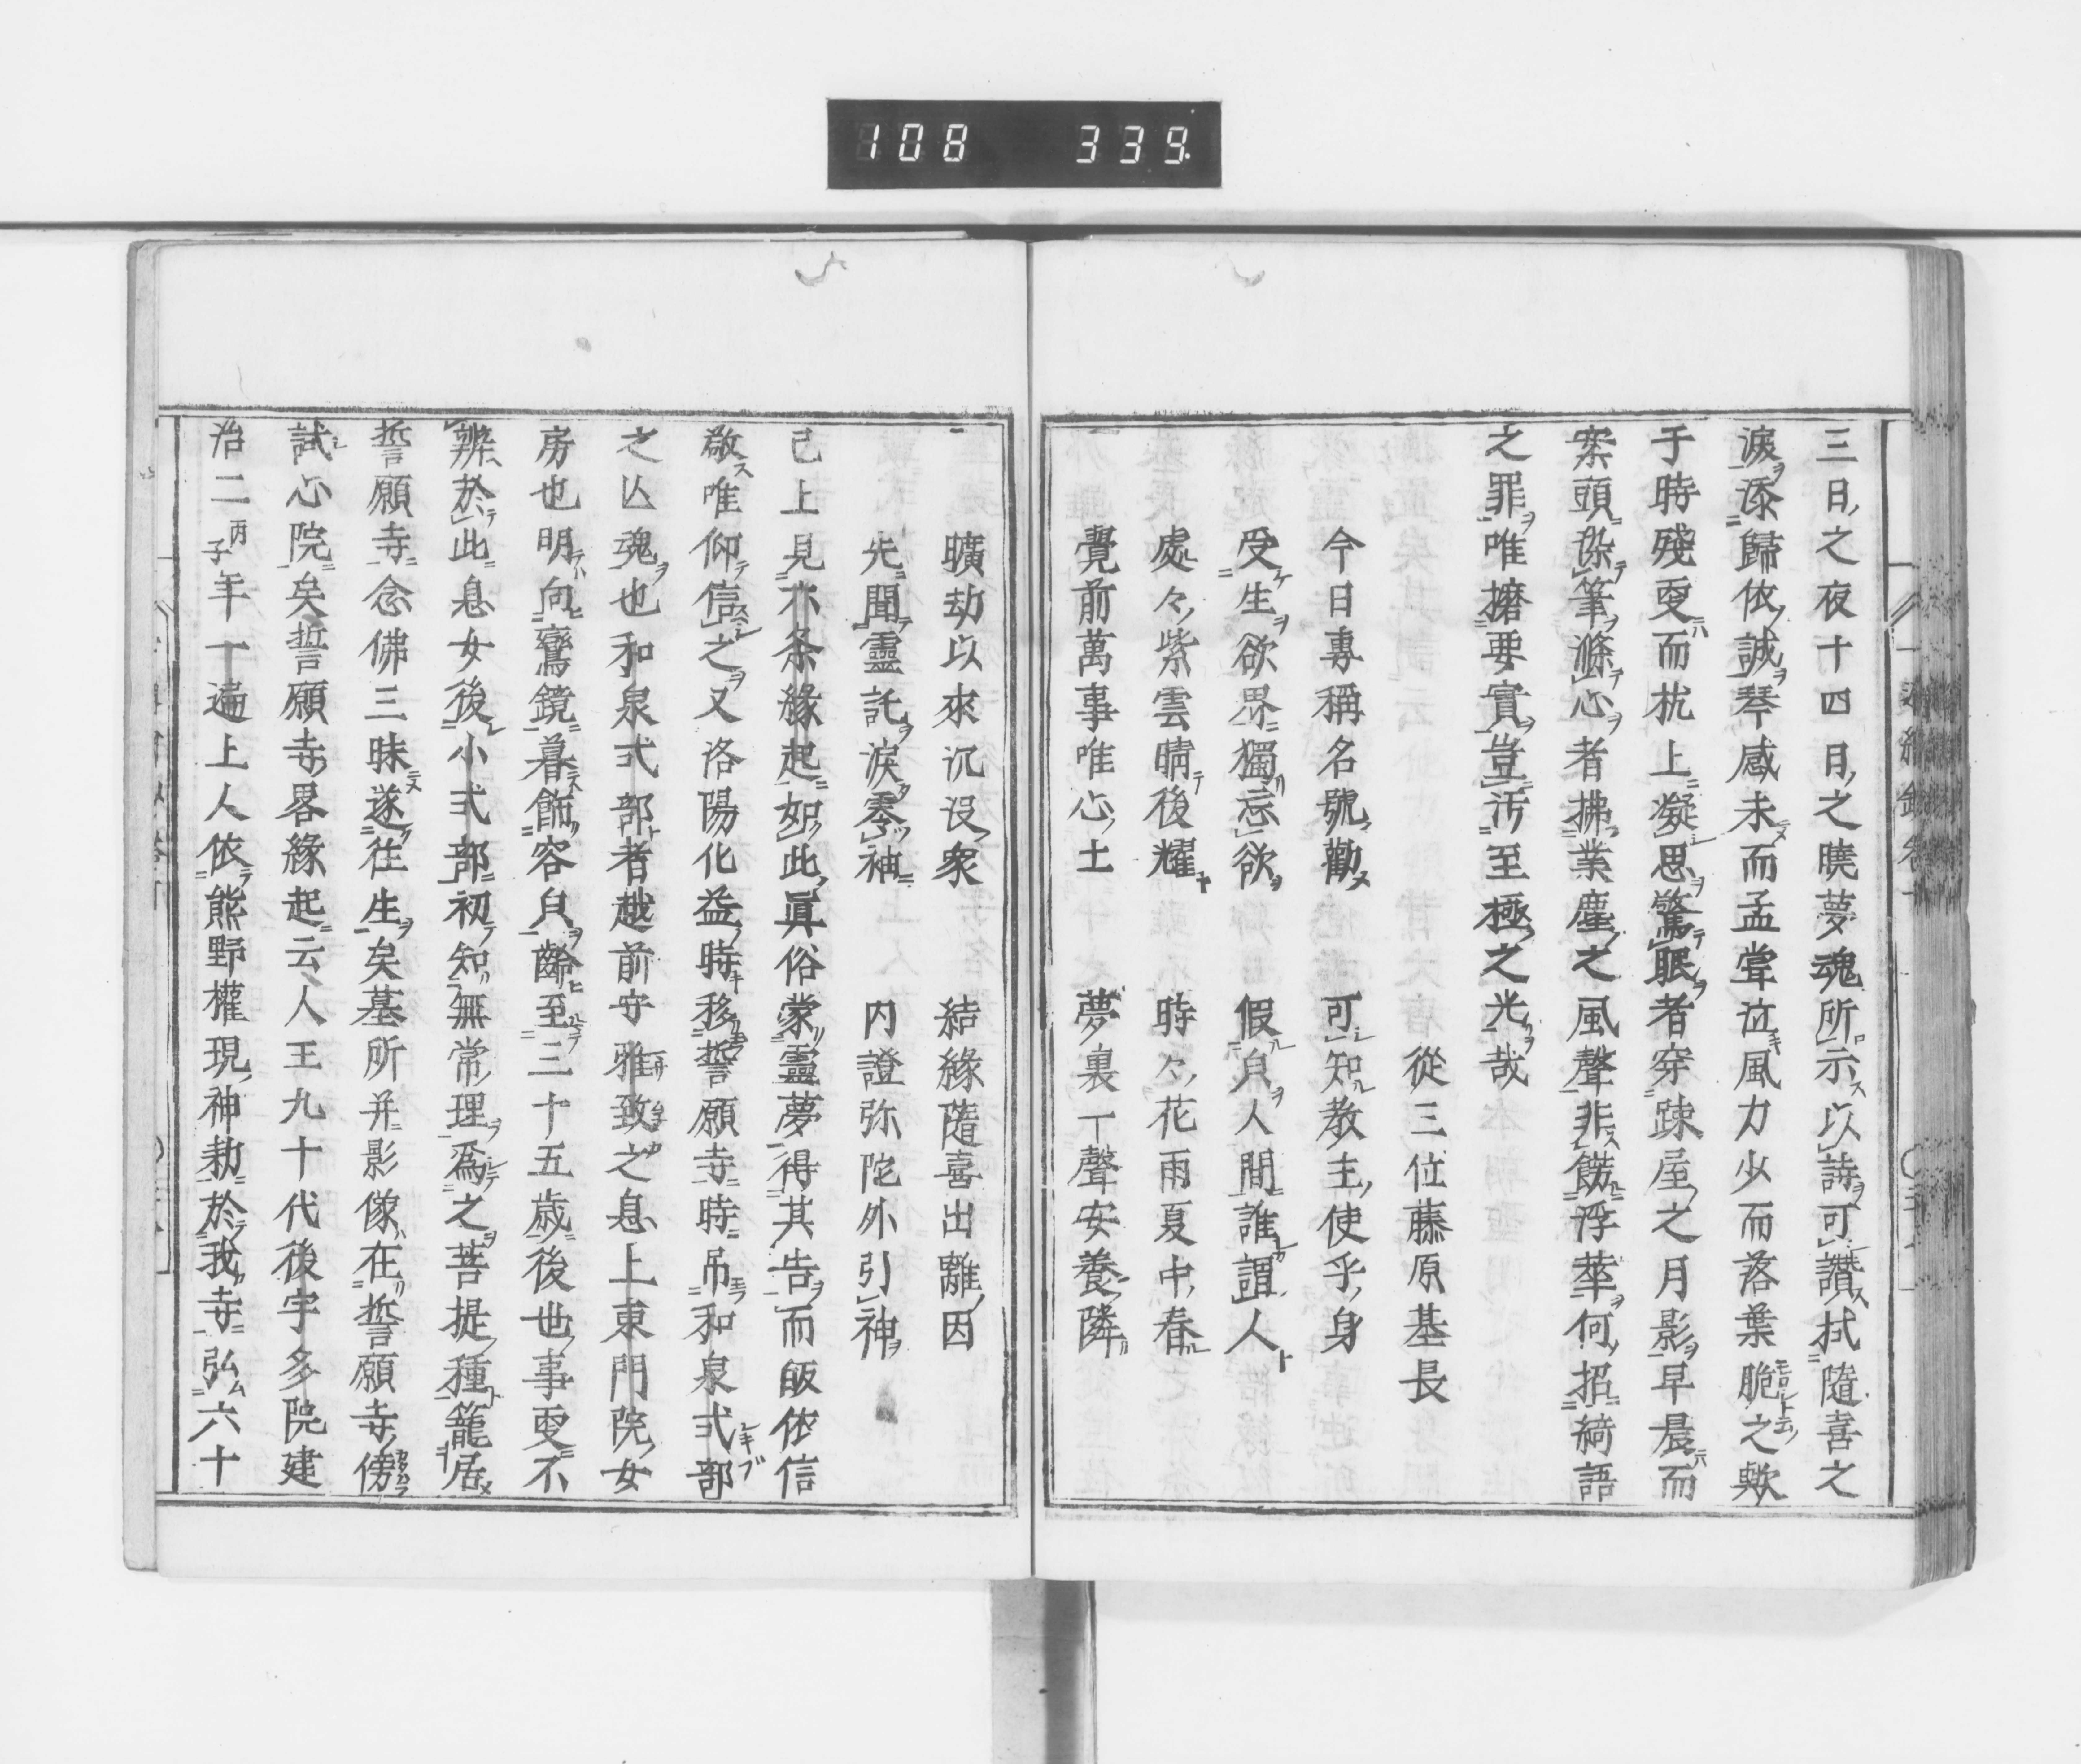 108 339
三日之夜十四日之曉夢魂所示以詩可讃拭隨喜之
淚添歸依誠琴感未而孟甞泣風力少而落葉脆之歟
于時殘更而枕上凝思驚眠者穿疎屋之月影早晨而
案頭染筆滌心者拂業塵之風聲非餝浮華何招綺語
之罪唯據要實豈汚至極之光哉
從三位藤原基長
今日專稱名號勸 可知教主使乎身
受生欲界獨忘欲 假皃人間誰謂人
處々紫雲晴後耀 時々花雨夏中春
覺前萬事唯心土 夢裏一聲安養隣
曠劫以來沉沒衆 結緣隨喜出離因
先聞靈託淚零袖 内證弥陀外引神
已上見六条緣起如此眞俗蒙靈夢得其告而皈依信
敬唯仰信之又洛陽化益時移誓願寺時吊和泉式部
之亾魂也和泉式部者越前守雅致之息上東門院女
房也明向鸞鏡暮餝容皃齡至二十五歳後世事更不
辨於此息女後小式部初知無常理爲之菩提種籠居
誓願寺念佛三昧遂往生矣墓所并影像在誓願寺傍
試心院矣誓願寺畧緣起云人王九十代後宇多院建
治二丙子年一遍上人依熊野權現神勅於我寺弘六十